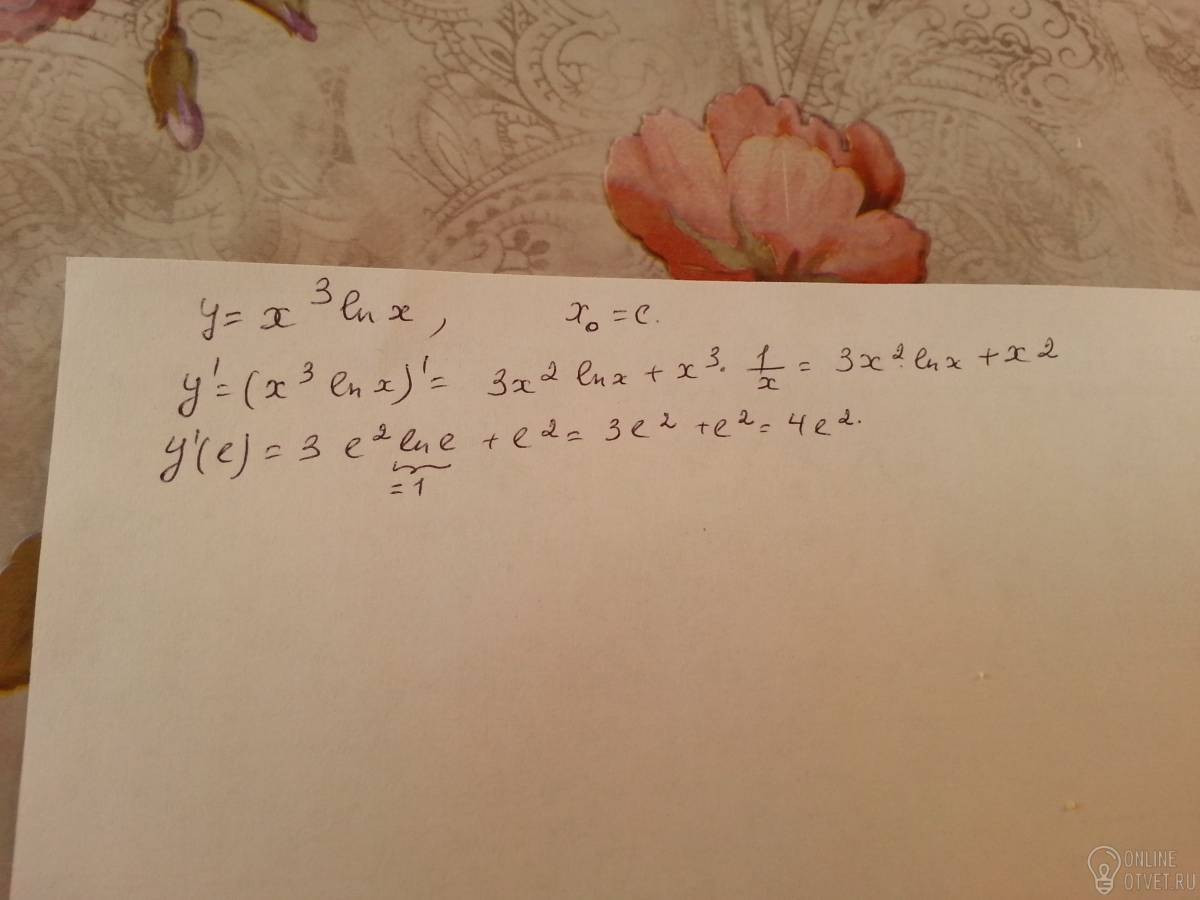 y = x³ ln x, x₀ = e.
y' = (x³ ln x)' = 3x² ln x + x³ · 1/x = 3x² · ln x + x²
y'(e) = 3 e² ln e + e² = 3e² + e² = 4e².
= 1
ONLINE
OTVET.RU